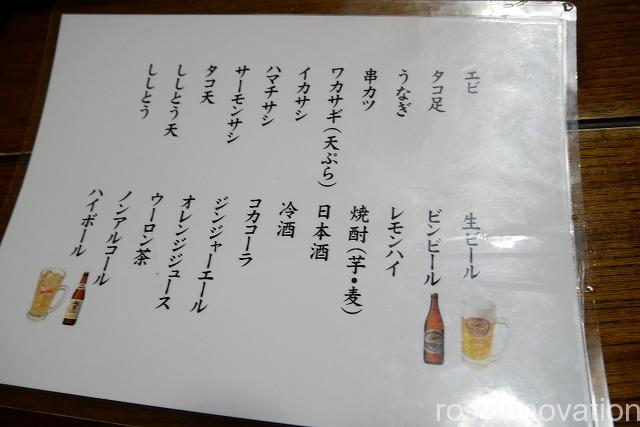 エビ
タコ足
うなぎ
串カツ
ワカサギ(天ぷら)
イカサシ
ハマチサシ
サーモンサシ
タコ天
ししとう天
ししとう
生ビール
ビンビール
レモンハイ
焼酎(芋・麦)
日本酒
冷酒
コカコーラ
ジンジャーエール
オレンジジュース
ウーロン茶
ノンアルコール
ハイボール
rosyinnovation